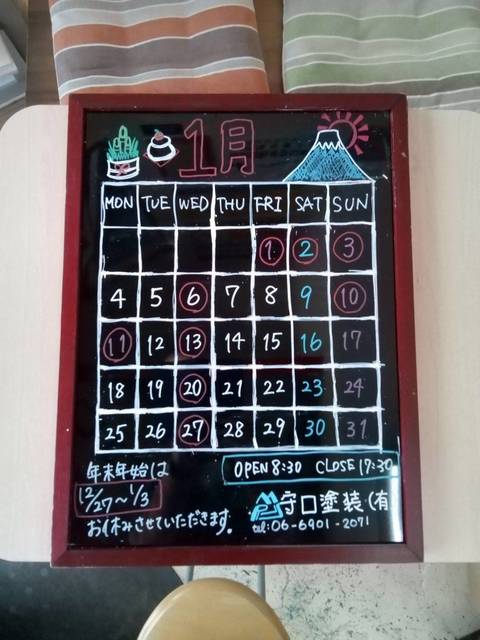 1月
MON TUE WED THU FRI SAT SUN
1 2 3
4 5 6 7 8 9 10
11 12 13 14 15 16 17
18 19 20 21 22 23 24
25 26 27 28 29 30 31
年末年始は
12/27〜1/3
お休みさせていただきます。
OPEN 8:30 CLOSE 17:30
守口塗装(有
tel:06-6901-2071